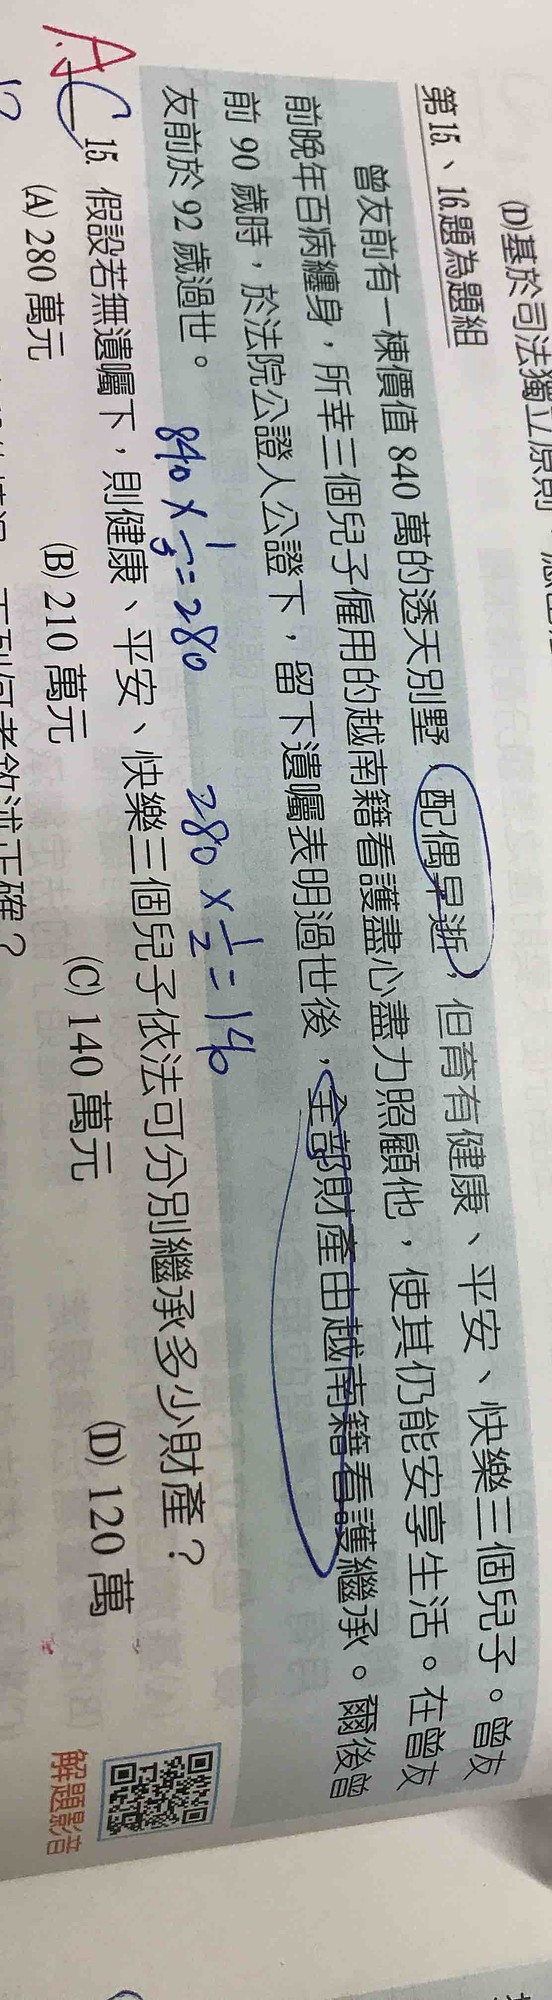 (D)基於司法獨立原則
第15、16題為題組
曾友前有一棟價值 840 萬的透天別墅，配偶早逝，但育有健康、平安、快樂三個兒子。曾友
前晚年百病纏身，所幸三個兒子僱用的越南籍看護盡心盡力照顧他，使其仍能安享生活。在曾友
前 90 歲時，於法院公證人公證下，留下遺囑表明過世後，全部財產由越南籍看護繼承。爾後曾
友前於 92 歲過世。
840 × 1/3 = 280
280 × 1/2 = 140
A
C
15. 假設若無遺囑下，則健康、平安、快樂三個兒子依法可分別繼承多少財產？
(A) 280 萬元 (B) 210 萬元 (C) 140 萬元 (D) 120 萬
解題影音
下列何者敘述正確？